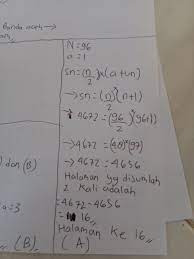 Banda aceh →
N = 96
a = 1
Sn = (n/2) x (a+un)
→ Sn = (n/2)(n+1)
→ 4672 = (96/2)(96+1)
→ 4672 = (48)(97)
→ 4672 = 4656
Halaman yg dijumlah
2 kali adalah
= 4672 - 4656
= 16 //
Halaman ke 16 //
(A)
dan (B)
a = 3
(B) //